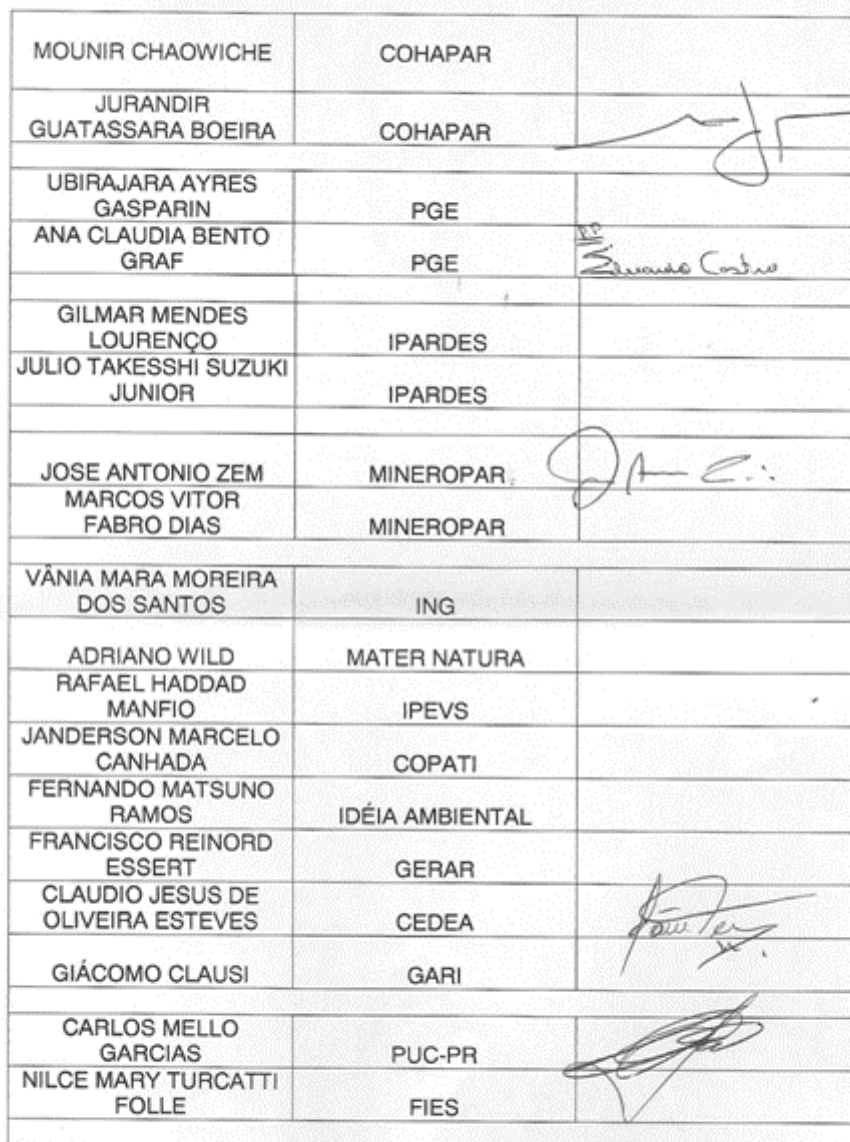 MOUNIR CHAOWICHE COHAPAR
JURANDIR
GUATASSARA BOEIRA COHAPAR
UBIRAJARA AYRES
GASPARIN PGE
ANA CLAUDIA BENTO
GRAF PGE
PP
Eduardo Castro
GILMAR MENDES
LOURENÇO IPARDES
JULIO TAKESSHI SUZUKI
JUNIOR IPARDES
JOSE ANTONIO ZEM MINEROPAR
MARCOS VITOR
FABRO DIAS MINEROPAR
VÂNIA MARA MOREIRA
DOS SANTOS ING
ADRIANO WILD MATER NATURA
RAFAEL HADDAD
MANFIO IPEVS
JANDERSON MARCELO
CANHADA COPATI
FERNANDO MATSUNO
RAMOS IDÉIA AMBIENTAL
FRANCISCO REINORD
ESSERT GERAR
CLAUDIO JESUS DE
OLIVEIRA ESTEVES CEDEA
GIÁCOMO CLAUSI GARI
CARLOS MELLO
GARCIAS PUC-PR
NILCE MARY TURCATTI
FOLLE FIES